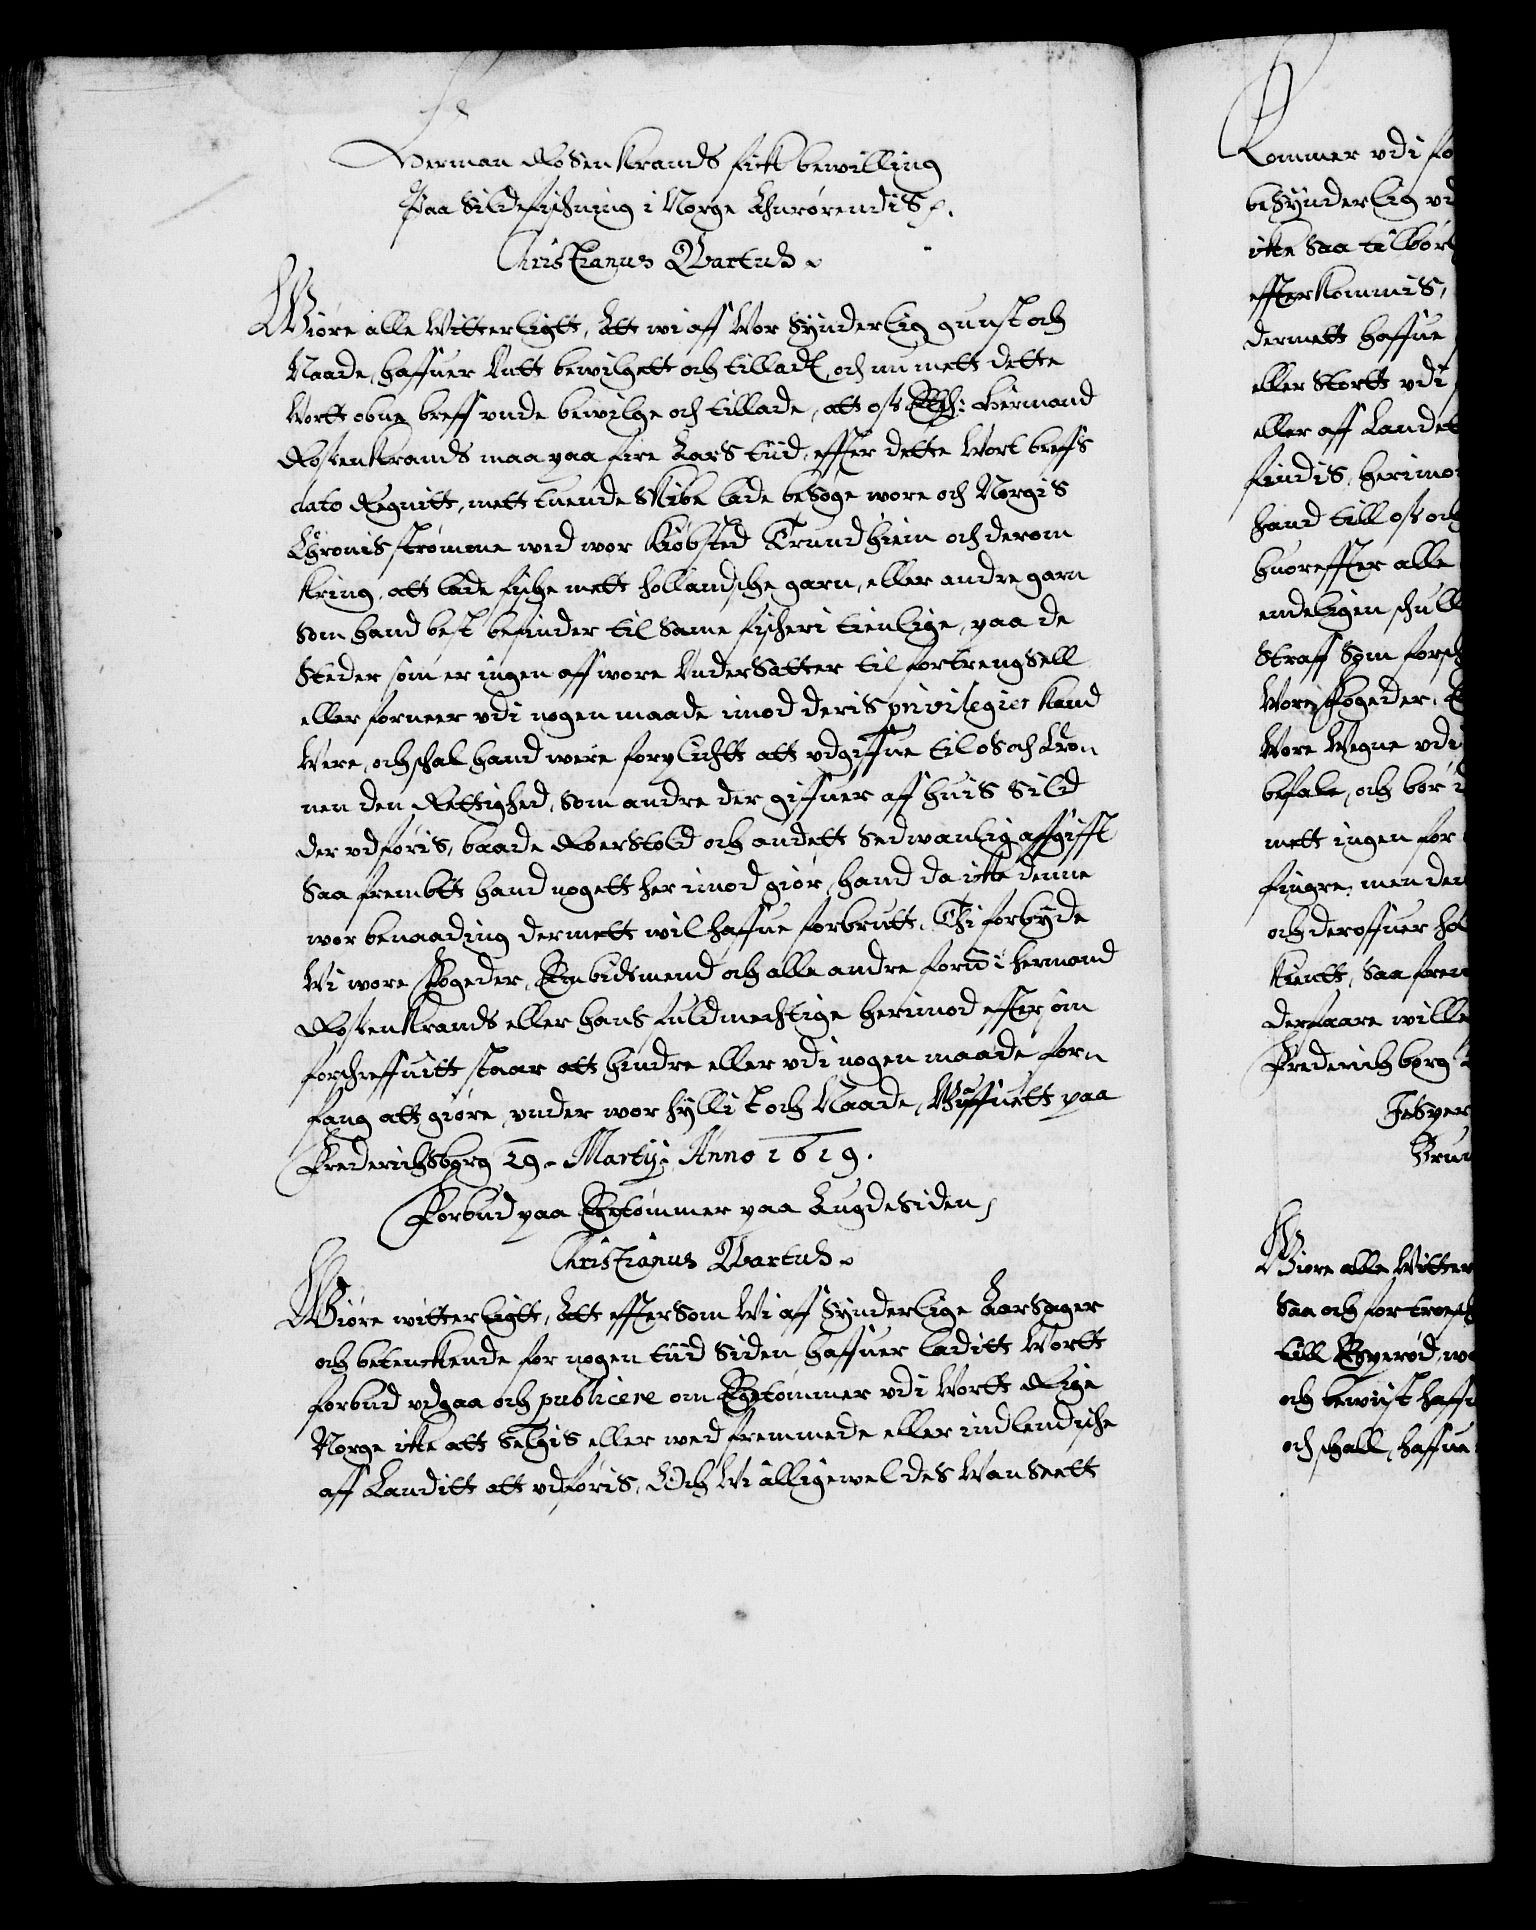 Herman Rosenkrands fick bewilling
Paa Sildefischning i Norge Anrørendis.
Christianus Qvartus
Giøre alle Witterligt, Att wi aff Wor Synderlig gunst och
Naade, haffuer Untt bewilgett och tilladt, och nu mett dette
Wortt obne breff unde bewilge och tillade, att oss Elsk: Hermand
Rosenkrands maa paa fire Aars tiid, effter dette Wort breffs
dato Regnitt, mett tuende Skibe lade besøge wore och Norgis
Chronis strømme wed wor Kiøbsted Trundhiem och derom
kring, att lade fische mett hollandsche garn, eller andre garn
som hand best befinder til same fischeri tienlige, paa de
Steder som er ingen aff wore Undersatter til fortrengsell
eller forneer udi nogen maade imod deris privilegier kand
Were, och schal hand were forplichtt att udgiffue til os och Kron
nen den Rettighed, som andre der giffuer aff huis Sild
der udføris, baade Roerstold och andett Sedwanlig affgifft
Saa frembtt hand nogett her imod giør, hand da icke denne
wor benaading dermett wil haffue forbrutt. Thi forbyde
Wi wore Fogeder, Embidsmend och alle andre forne Hermand
Rosenkrands eller hans fuldmechtige herimod effter som
forschreffuitt staar att hindre eller udi nogen maade forn
fang att giøre, under wor hyllist och Naade, Giffuett paa
Frederichsborg 29. Martij, Anno 1619.
Forbud paa Egetømmer paa Augdesiden
Christianus Qvartus
Giøre witterligt, Att efftersom Wi aff Synderlige Aarsager
och betenckende for nogen tiid siden haffuer laditt Wortt
forbud udgaa och publicere om Egetømmer udi Wortt Rige
Norge icke att Selgis eller wed fremmede eller indlendische
aff Landitt att udføris. Och Wi alligewel des Wanseett
Kommer udi fo
besynderlig ud
icke saa tilbør
effterkommis,
dermett haffue
eller Stortt udi
eller aff Landet
findis, herimo
hand till oss och
huoreffter alle
endeligen schull
Straff som forsch
Wore Fogeder, E
Wore Wegne udi
befale, och bør
mett ingen for
fingre, men der
och deroffuer ha
kientt, saa frem
derfaare wille
Frederichborg
Jesper
Brun
Giøre alle Witter
Saa och for troeschab
till Egerød, we
och bewist haffu
och schall, haffue